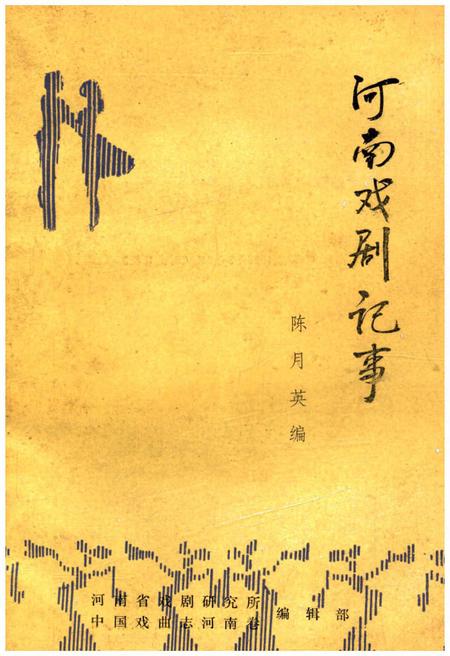 河南戏剧记事
陈月英编
河南省戏剧研究所
中国戏曲志河南卷
编辑部